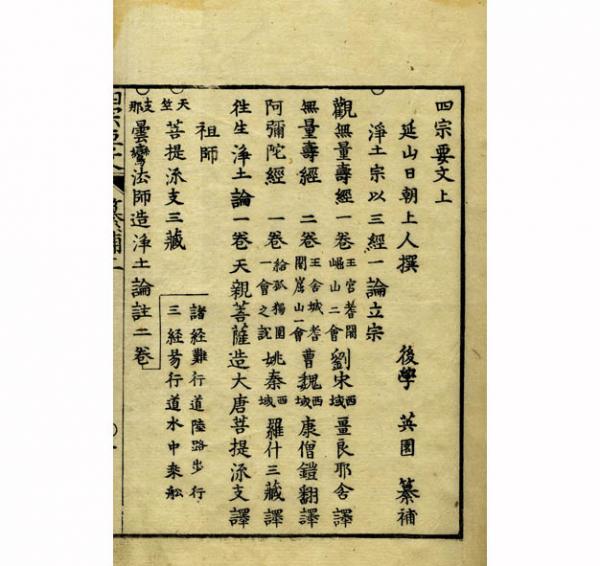 四宗要文上
延山日朝上人撰 後學 英園 纂補
淨土宗以三經一論立宗
觀無量壽經一卷 王宮耆闍崛山二會 劉宋西域畺良耶舍譯
無量壽經 二卷 王舍城耆闍崛山一會 曹魏西域康僧鎧翻譯
阿彌陀經 一卷 給孤獨園一會之說 姚秦西域羅什三藏譯
往生淨土論一卷天親菩薩造大唐菩提流支譯
祖師
天竺 菩提流支三藏
支那 曇鸞法師造淨土論註二卷
諸経難行道陸路步行
三経易行道水中乗舩
纂補